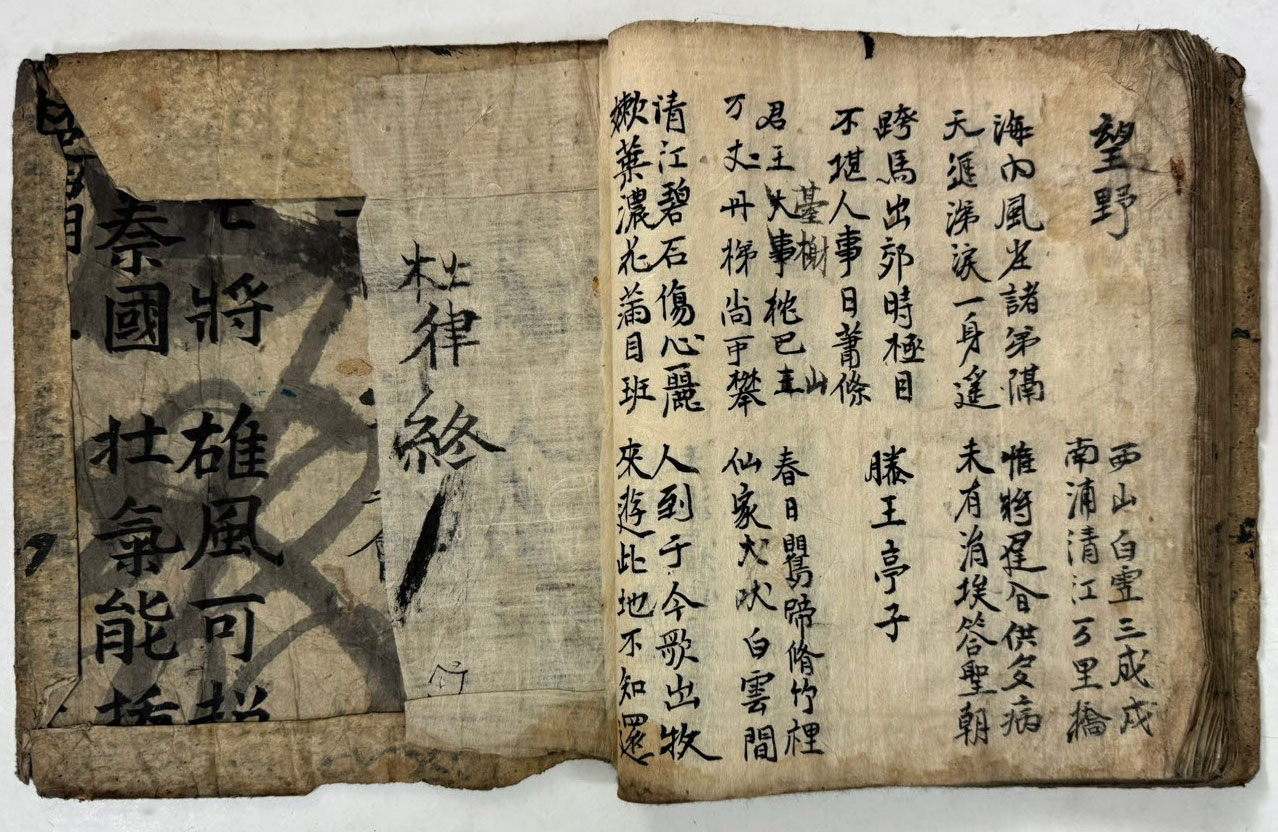 望野
西山白雪三成戍
南浦清江万里橋
海內風尘諸弟隔
天涯涕淚一身遥
惟將遲暮供多病
未有消埃答聖朝
跨馬出郊時極目
不堪人事日蕭條
滕王亭子
君王大事枕巴山
臺榭
万丈丹梯尚可攀
春日鸎啼脩竹裡
仙家犬吠白雲間
清江碧石傷心麗
嫩葉濃花滿目班
人到于今歌出牧
來遊此地不知還
杜律終
將雄風可
秦國壯氣能